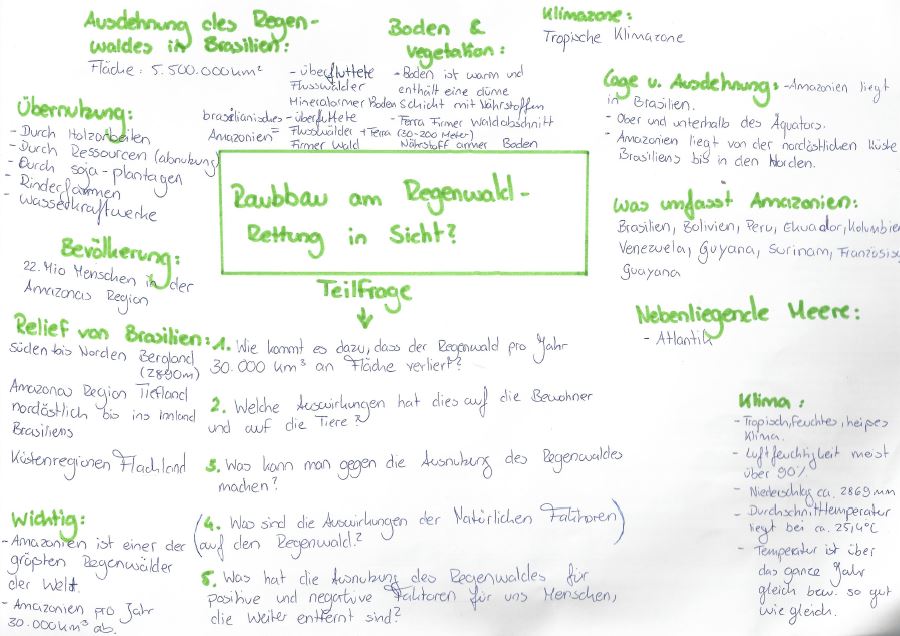 Ausdehnung des Regen-
waldes in Brasilien:
Fläche: 5.500.000 km²
- überflutete
Flusswälder
Mineralarmer Boden
brasilianisches
Amazonien =
- überflutete
Flusswälder + Terra
Firmer Wald
Boden &
Vegetation:
- Boden ist warm und
enthält eine dünne
Schicht mit Nährstoffen
- Terra Firmer Waldabschnitt
(30-200 Meter)
Nährstoff armer Boden
Klimazone:
Tropische Klimazone
Lage u. Ausdehnung: - Amazonien liegt
in Brasilien.
- Ober und unterhalb des Äquators.
- Amazonien liegt von der nordöstlichen Küste
Brasiliens bis in den Norden.
Übernutzung:
- Durch Holzarbeiten
- Durch Ressourcen (abnutzung)
- Durch soja-plantagen
- Rinderfarmen
- Wasserkraftwerke
Raubbau am Regenwald -
Rettung in Sicht?
Was umfasst Amazonien:
Brasilien, Bolivien, Peru, Ekuador, Kolumbien
Venezuela, Guyana, Surinam, Französisch
Guayana
Bevölkerung:
22. Mio Menschen in der
Amazonas Region
Teilfrage
Nebenliegende Meere:
- Atlantik
Relief von Brasilien:
Süden bis Norden Bergland
(2890m)
Amazonas Region Tiefland
nordöstlich bis ins Inland
Brasiliens
Küstenregionen Flachland
1. Wie kommt es dazu, dass der Regenwald pro Jahr
30.000 km³ an Fläche verliert?
2. Welche Auswirkungen hat dies auf die Bewohner
und auf die Tiere?
3. Was kann man gegen die Ausnutzung des Regenwaldes
machen?
(4. Was sind die Auswirkungen der Natürlichen Faktoren)
auf den Regenwald?
5. Was hat die Ausnutzung des Regenwaldes für
positive und negative Faktoren für uns Menschen,
die weiter entfernt sind?
Klima:
- Tropisch, feuchtes, heißes
Klima.
- Luftfeuchtigkeit meist
über 90%
- Niederschlag ca. 2869 mm
- Durchschnittemperatur
liegt bei ca. 25,4°C
- Temperatur ist über
das ganze Jahr
gleich bzw. so gut
wie gleich.
Wichtig:
- Amazonien ist einer der
größten Regenwälder
der Welt.
- Amazonien pro Jahr
30.000 km³ ab.